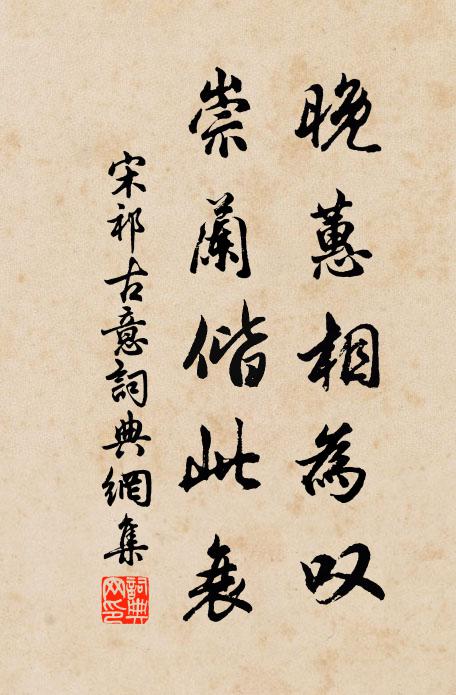 晚蕙相為叹
崇蘭偕此衰
宋祁古意詞典網集
詞典網印